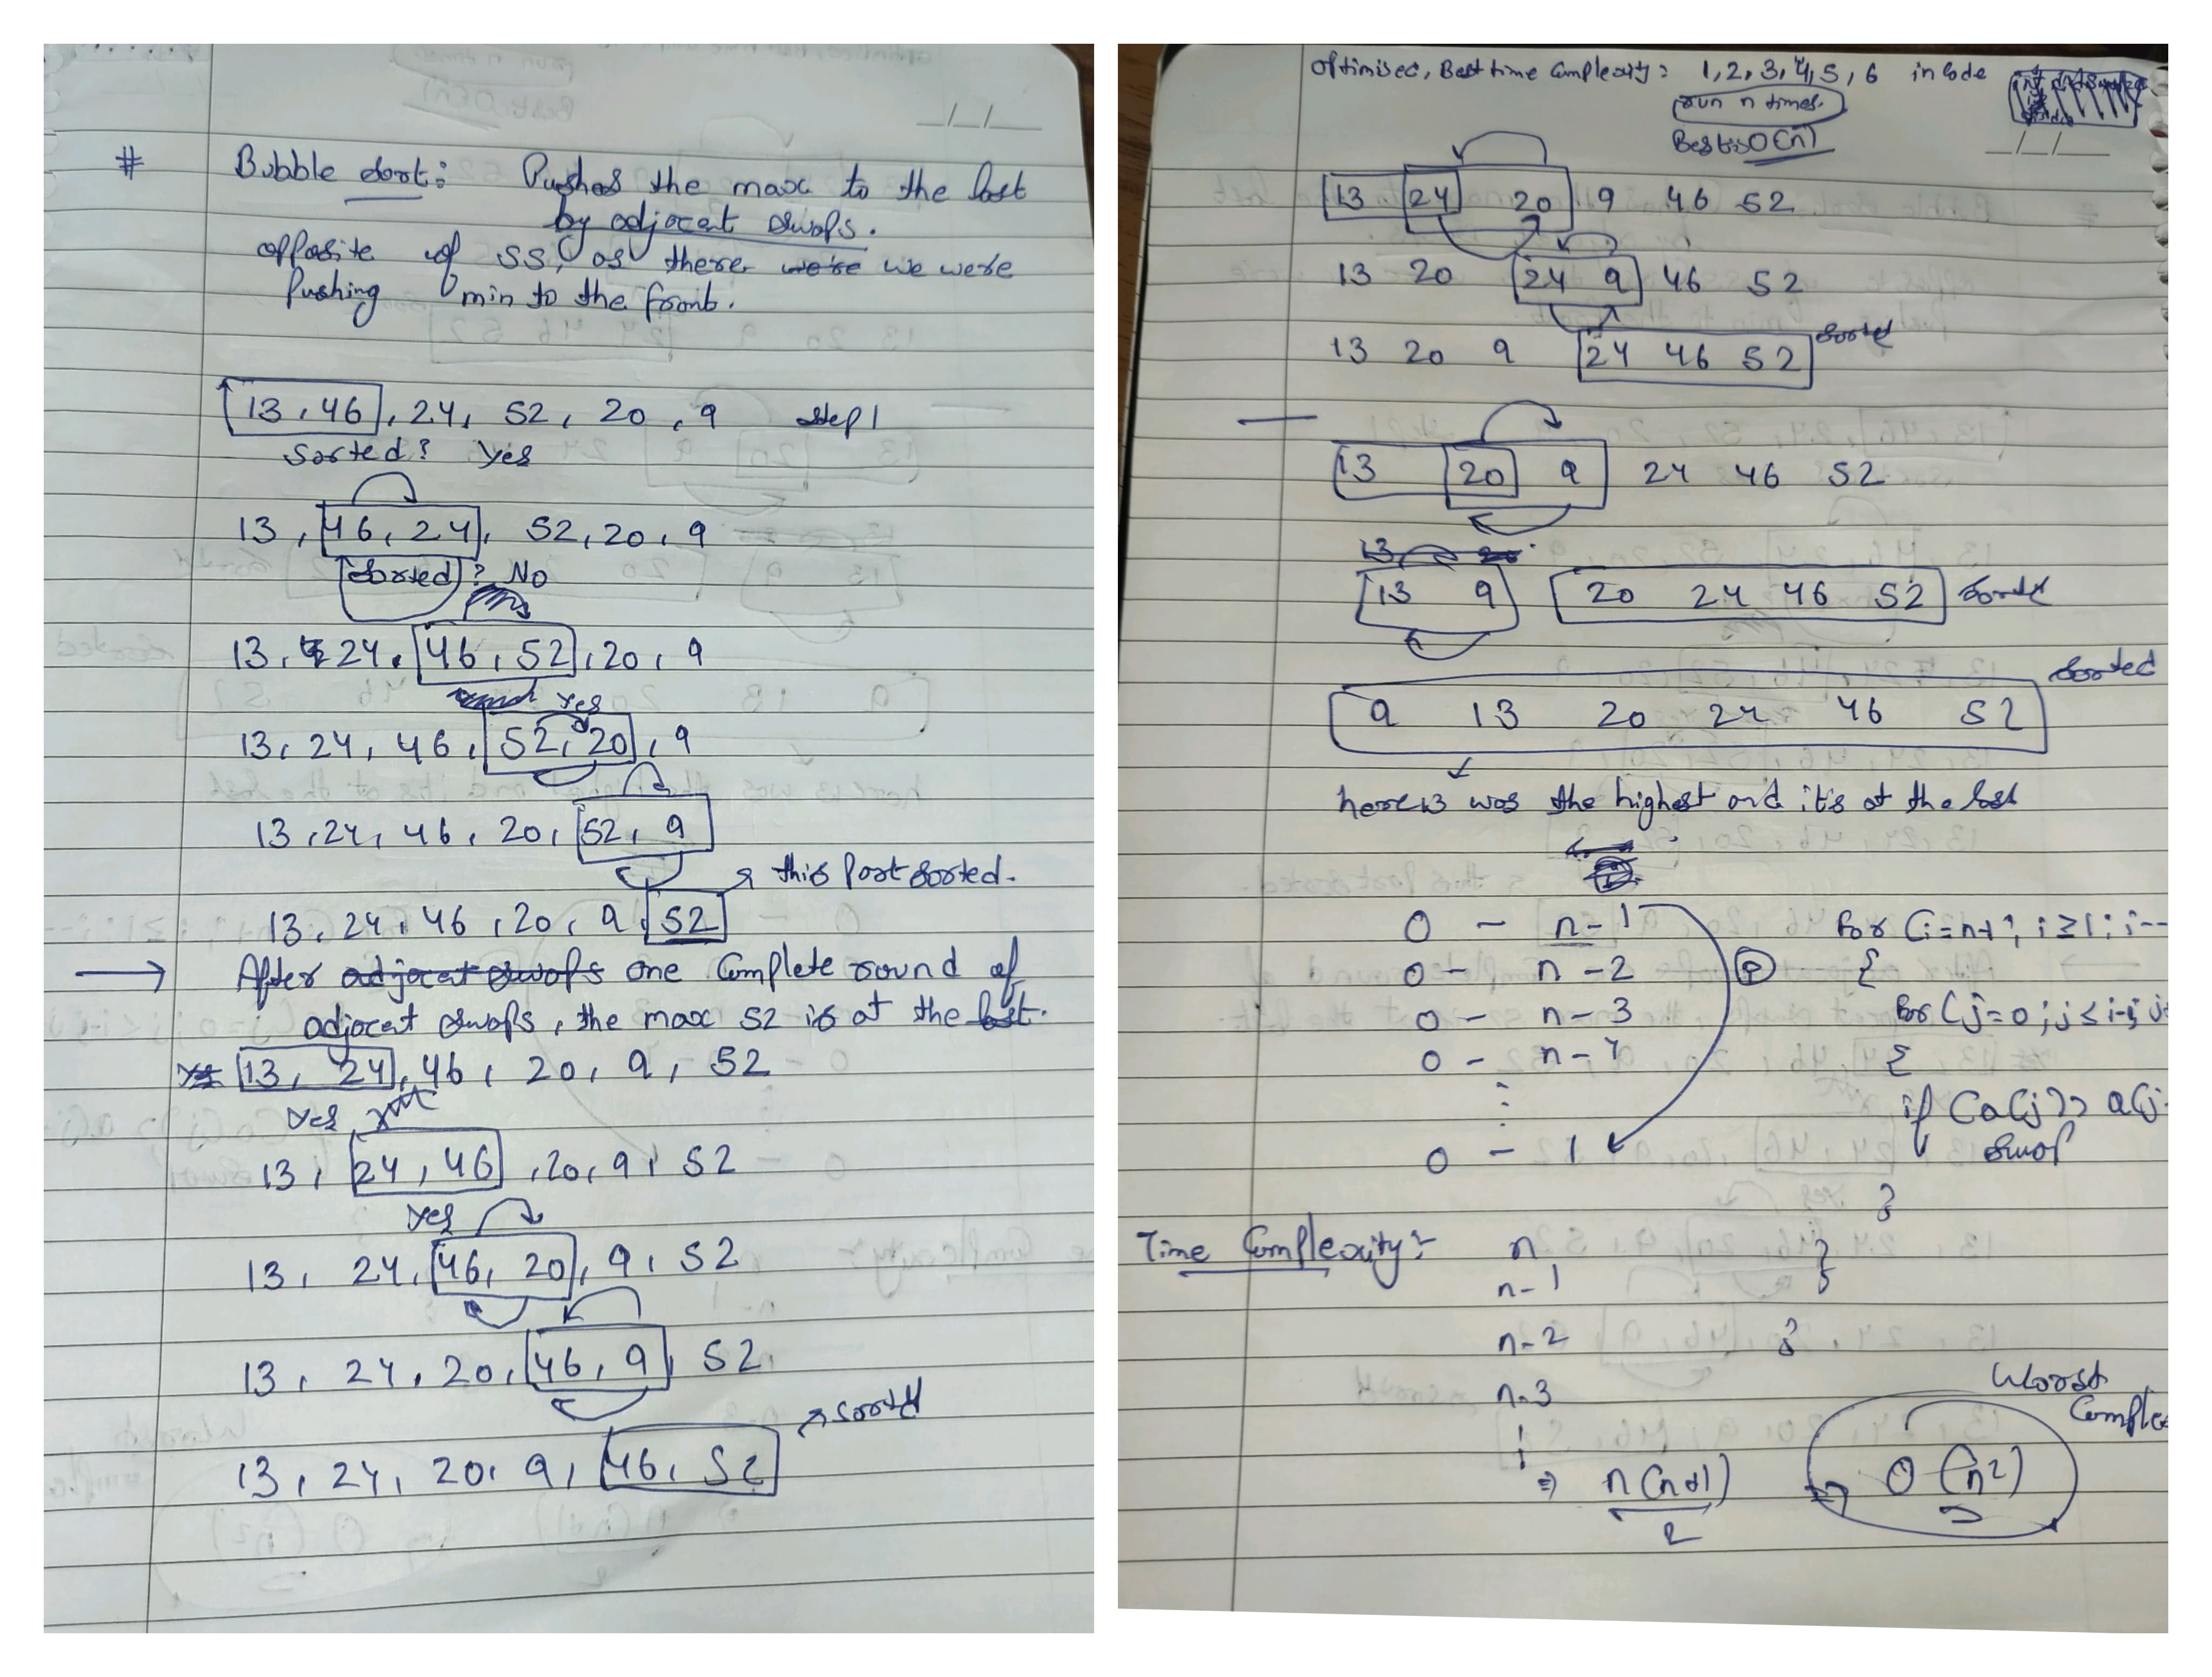 # Bubble sort: Pushes the max to the last
by adjacent swaps.
opposite of SS, as there were we were
Pushing min to the front.
13, 46, 24, 52, 20, 9 step 1
Sorted? Yes
13, 46, 24, 52, 20, 9
Sorted? No
13, 24, 46, 52, 20, 9
Yes
13, 24, 46, 52, 20, 9
13, 24, 46, 20, 52, 9
this part sorted.
13, 24, 46, 20, 9, 52
→ After adjacent swaps one Complete round of
adjacent swaps, the max 52 is at the last.
13, 24, 46, 20, 9, 52
Yes
13, 24, 46, 20, 9, 52
Yes
13, 24, 46, 20, 9, 52
13, 24, 20, 46, 9, 52
sorted
13, 24, 20, 9, 46, 52
Optimised, Best time Complexity: 1, 2, 3, 4, 5, 6 in code
run n times.
Best is O(n)
13 24 20 9 46 52
13 20 24 9 46 52
13 20 9 24 46 52 sorted
13 20 9 24 46 52
13 20
13 9 20 24 46 52 sorted
sorted
9 13 20 24 46 52
here 13 was the highest and it's at the last
0 - n-1 for (i=n-1; i≥1; i--
0 - n-2 {
0 - n-3 for (j=0; j≤i-1; j+
0 - n-4 {
if (a[j] > a[j+
0 - 1 swap
}
Time Complexity:- n }
n-1
n-2 }
n-3
Worst
Comple
⇒ n(n+1)
2
⇒ O(n²)